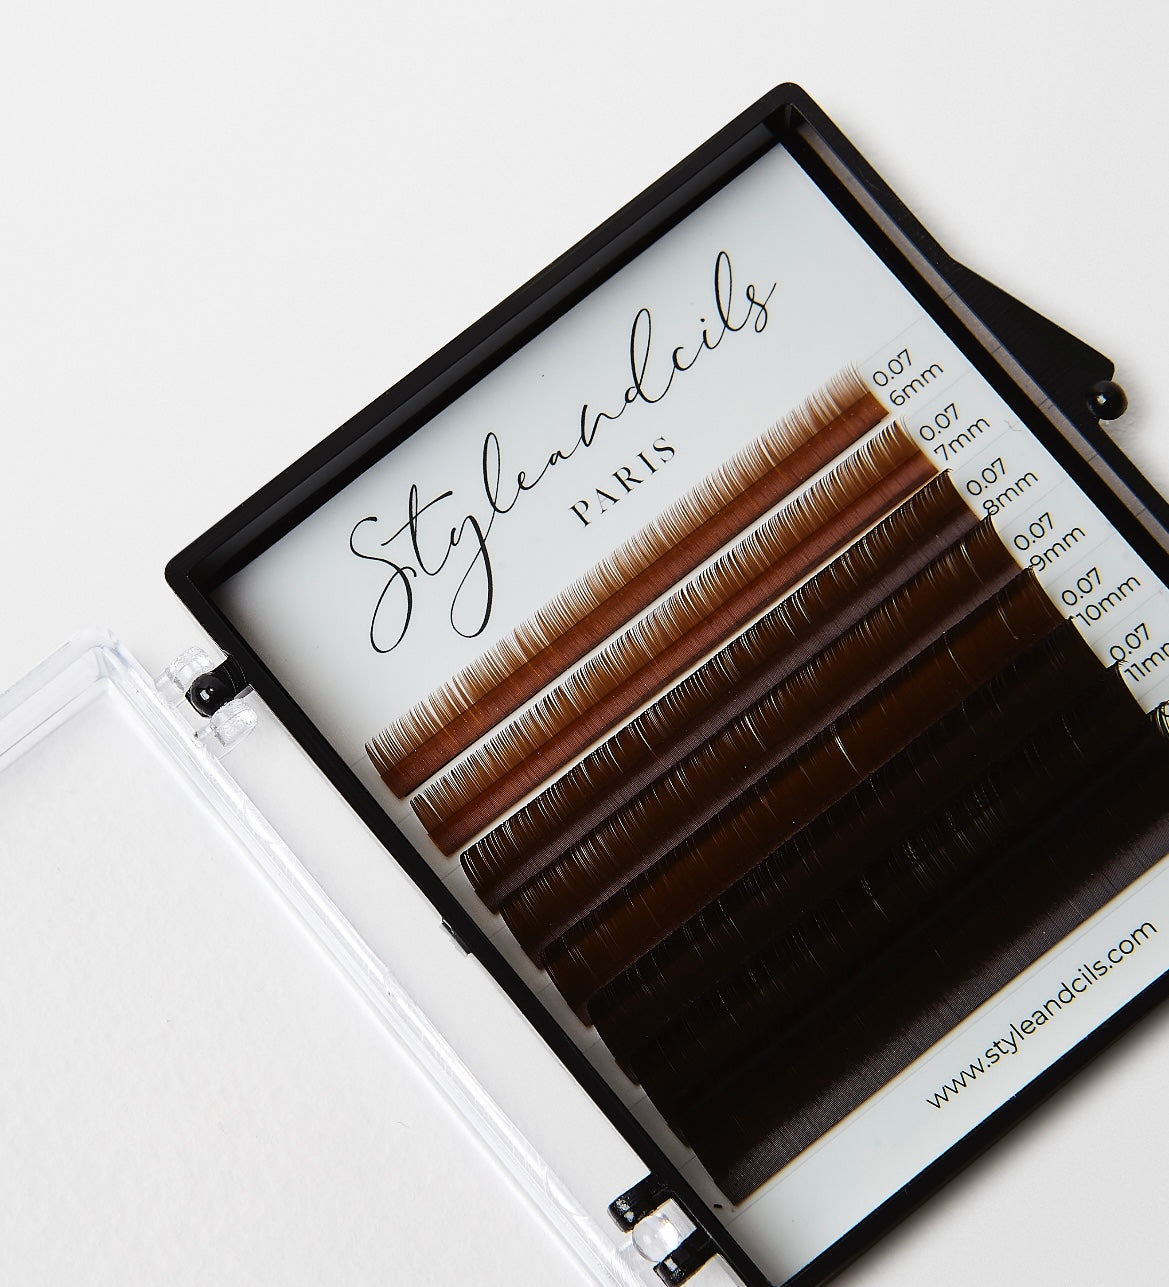 Styleandcils
PARIS
0.07
6mm
0.07
7mm
0.07
8mm
0.07
9mm
0.07
10mm
0.07
www.styleandcils.com